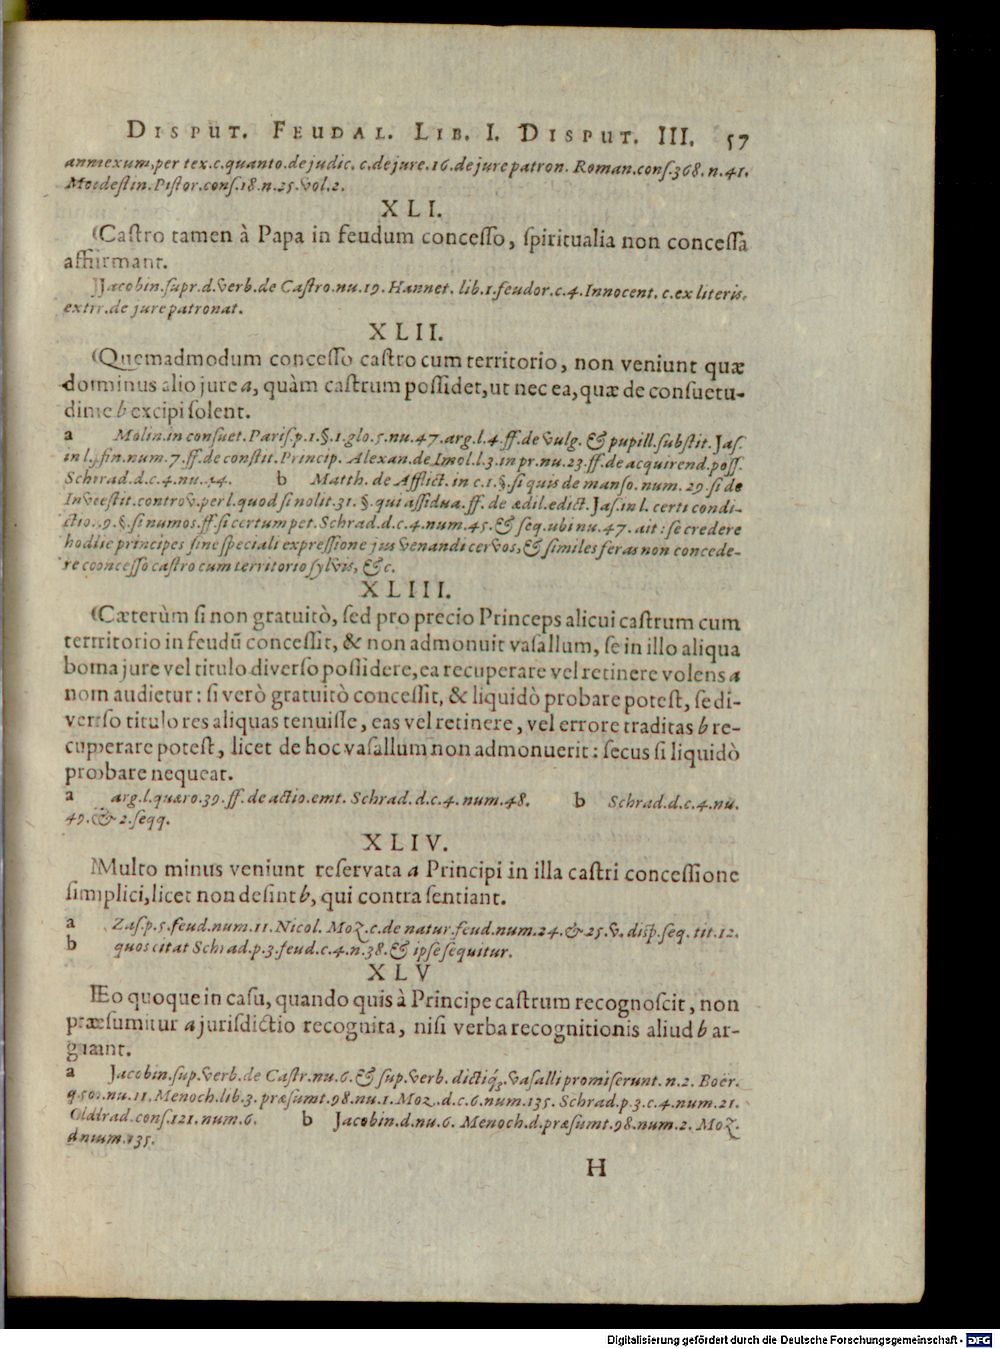 DISPUT. FEUDAL. LIB. I. DISPUT. III. 57
annexum, per tex. c. quanto. de judic. c. de jure. 16. de jure patron. Roman. conſ. 368. n. 41.
Modeſtin. Piſtor. conſ. 18. n. 25. vol. 2.
XLI.
Caſtro tamen à Papa in feudum conceſſo, ſpiritualia non conceſſa
affirmant.
Jacobin. ſupr. d. verb. de Caſtro. nu. 19. Hannet. lib. 1. feudor. c. 4. Innocent. c. ex literis.
extr. de jure patronat.
XLII.
Quemadmodum conceſſo caſtro cum territorio, non veniunt quæ
dominus alio jure a, quàm caſtrum poſſidet, ut nec ea, quæ de conſuetu-
dine b excipi ſolent.
a Molin. in conſuet. Pariſ. p. 1. §. 1. glo. 5. nu. 47. arg. l. 4. ff. de vulg. & pupill. ſubſtit. Jaſ.
in l. fin. num. 7. ff. de conſtit. Princip. Alexan. de Imol. l. 3. in pr. nu. 23. ff. de acquirend. poſſ.
Schrad. d. c. 4. nu. 54. b Matth. de Afflict. in c. 1. §. ſi quis de manſo. num. 29. ſi de
Inveſtit. controv. per l. quod ſi nolit. 31. §. qui aſſidua. ff. de ædil. edict. Jaſ. in l. certi condi-
ctio. 9. §. ſi numos. ff. ſi certum pet. Schrad. d. c. 4. num. 45. & ſeq. ubi nu. 47. ait: ſe credere
hodie principes ſine ſpeciali expreſſione jus venandi cervos, & ſimiles feras non concede-
re conceſſo caſtro cum territorio ſylvis, &c.
XLIII.
Cæterùm ſi non gratuitò, ſed pro precio Princeps alicui caſtrum cum
territorio in feudū conceſſit, & non admonuit vaſallum, ſe in illo aliqua
bona jure vel titulo diverſo poſſidere, ea recuperare vel retinere volens a
non audietur: ſi verò gratuitò conceſſit, & liquidò probare poteſt, ſe di-
verſo titulo res aliquas tenuiſſe, eas vel retinere, vel errore traditas b re-
cuperare poteſt, licet de hoc vaſallum non admonuerit: ſecus ſi liquidò
probare nequeat.
a arg. l. quæro. 39. ff. de actio. emt. Schrad. d. c. 4. num. 48. b Schrad. d. c. 4. nu.
49. & 2. ſeqq.
XLIV.
Multo minus veniunt reſervata a Principi in illa caſtri conceſſione
ſimplici, licet non deſint b, qui contra ſentiant.
a Zaſ. p. 5. feud. num. 11. Nicol. Moz. c. de natur. feud. num. 24. & 25. v. diſp. ſeq. tit. 12.
b quos citat Schrad. p. 3. feud. c. 4. n. 38. & ipſe ſequitur.
XLV
Eo quoque in caſu, quando quis à Principe caſtrum recognoſcit, non
præſumitur a jurisdictio recognita, niſi verba recognitionis aliud b ar-
guant.
a Jacobin. ſup. verb. de Caſtr. nu. 6. & ſup. verb. dictiq́; vaſalli promiſerunt. n. 2. Boër.
q. 502. nu. 11. Menoch. lib. 3. præſumt. 98. nu. 1. Moz. d. c. 6. num. 135. Schrad. p. 3. c. 4. num. 21.
Oldrad. conſ. 121. num. 6. b Jacobin. d. nu. 6. Menoch. d. præſumt. 98. num. 2. Moz.
d num. 135.
H
Digitalisierung gefördert durch die Deutsche Forschungsgemeinschaft - DFG